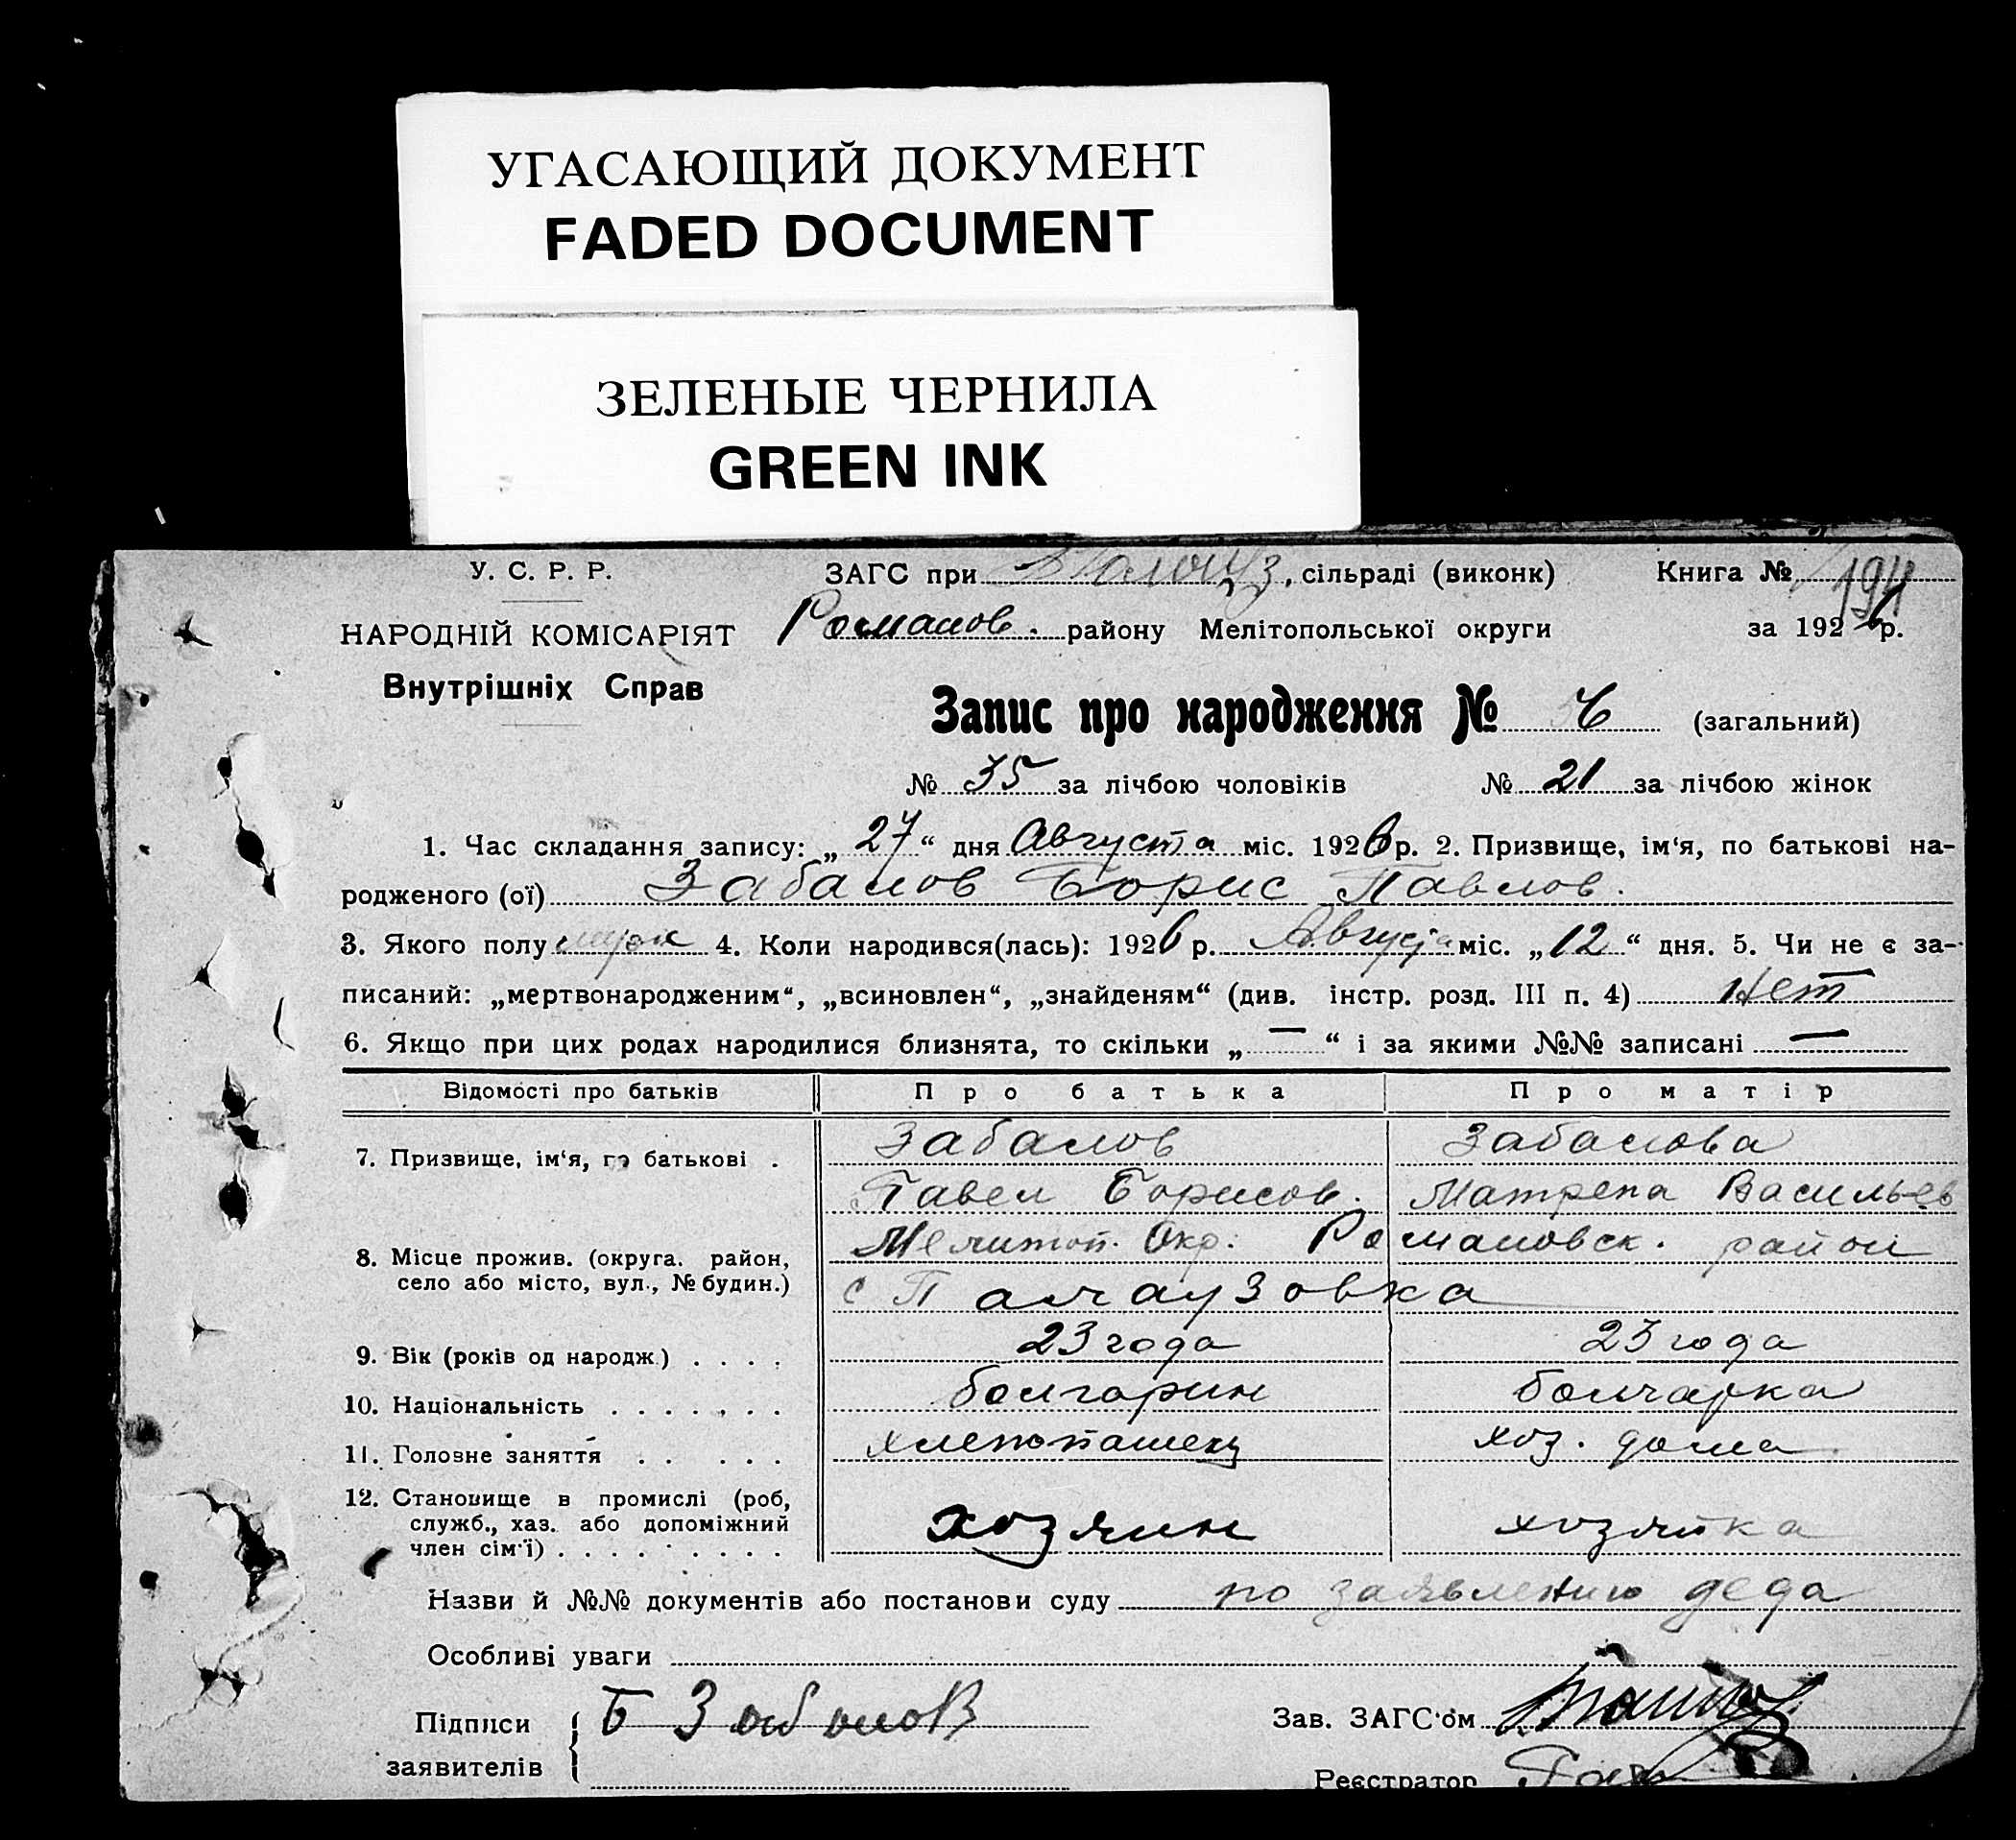 УГАСАЮЩИЙ ДОКУМЕНТ
FADED DOCUMENT
ЗЕЛЕНЫЕ ЧЕРНИЛА
GREEN INK
У. С. Р. Р.
ЗАГС при сільраді (виконк) Книга №
194
НАРОДНІЙ КОМІСАРІЯТ
Романов. району Мелітопольської округи за 1926 р.
Внутрішніх Справ
Запис про народження № (загальний)
№ 35 за лічбою чоловіків № 21 за лічбою жінок
1. Час складання запису: „27“ дня Августа міс. 1926 р. 2. Призвище, ім‘я, по батькові на-
родженого (ої) Забалов Борис Павлов.
3. Якого полу муж 4. Коли народився(лась): 1926 р. Августа міс. „12“ дня. 5. Чи не є за-
писаний: „мертвонародженим“, „всиновлен“, „знайденям“ (див. інстр. розд. III п. 4) Нет
6. Якщо при цих родах народилися близнята, то скільки „—“ і за якими №№ записані —
Відомості про батьків Про батька Про матір
7. Призвище, ім‘я, по батькові . Забалов Забалова
Павел Борисов. Матрена Васильев
8. Місце прожив. (округа. район, село або місто, вул., № будин.) Мелитоп. Окр. Романовск. район
с Палаузовка
9. Вік (років од народж.) . . . . 23 года 23 года
10. Національність . . . . . . . болгарин болгарка
11. Головне заняття . . . . . хлепопашец хоз. дома
12. Становище в промислі (роб,
служб., хаз. або допоміжний
член сім‘ї) . . . . . . . . . хозяин хозяйка
Назви й №№ документів або постанови суду по заявлению деда
Особливі уваги
Підписи заявителів Б Забалов
Зав. ЗАГС‘ом
Реєстратор